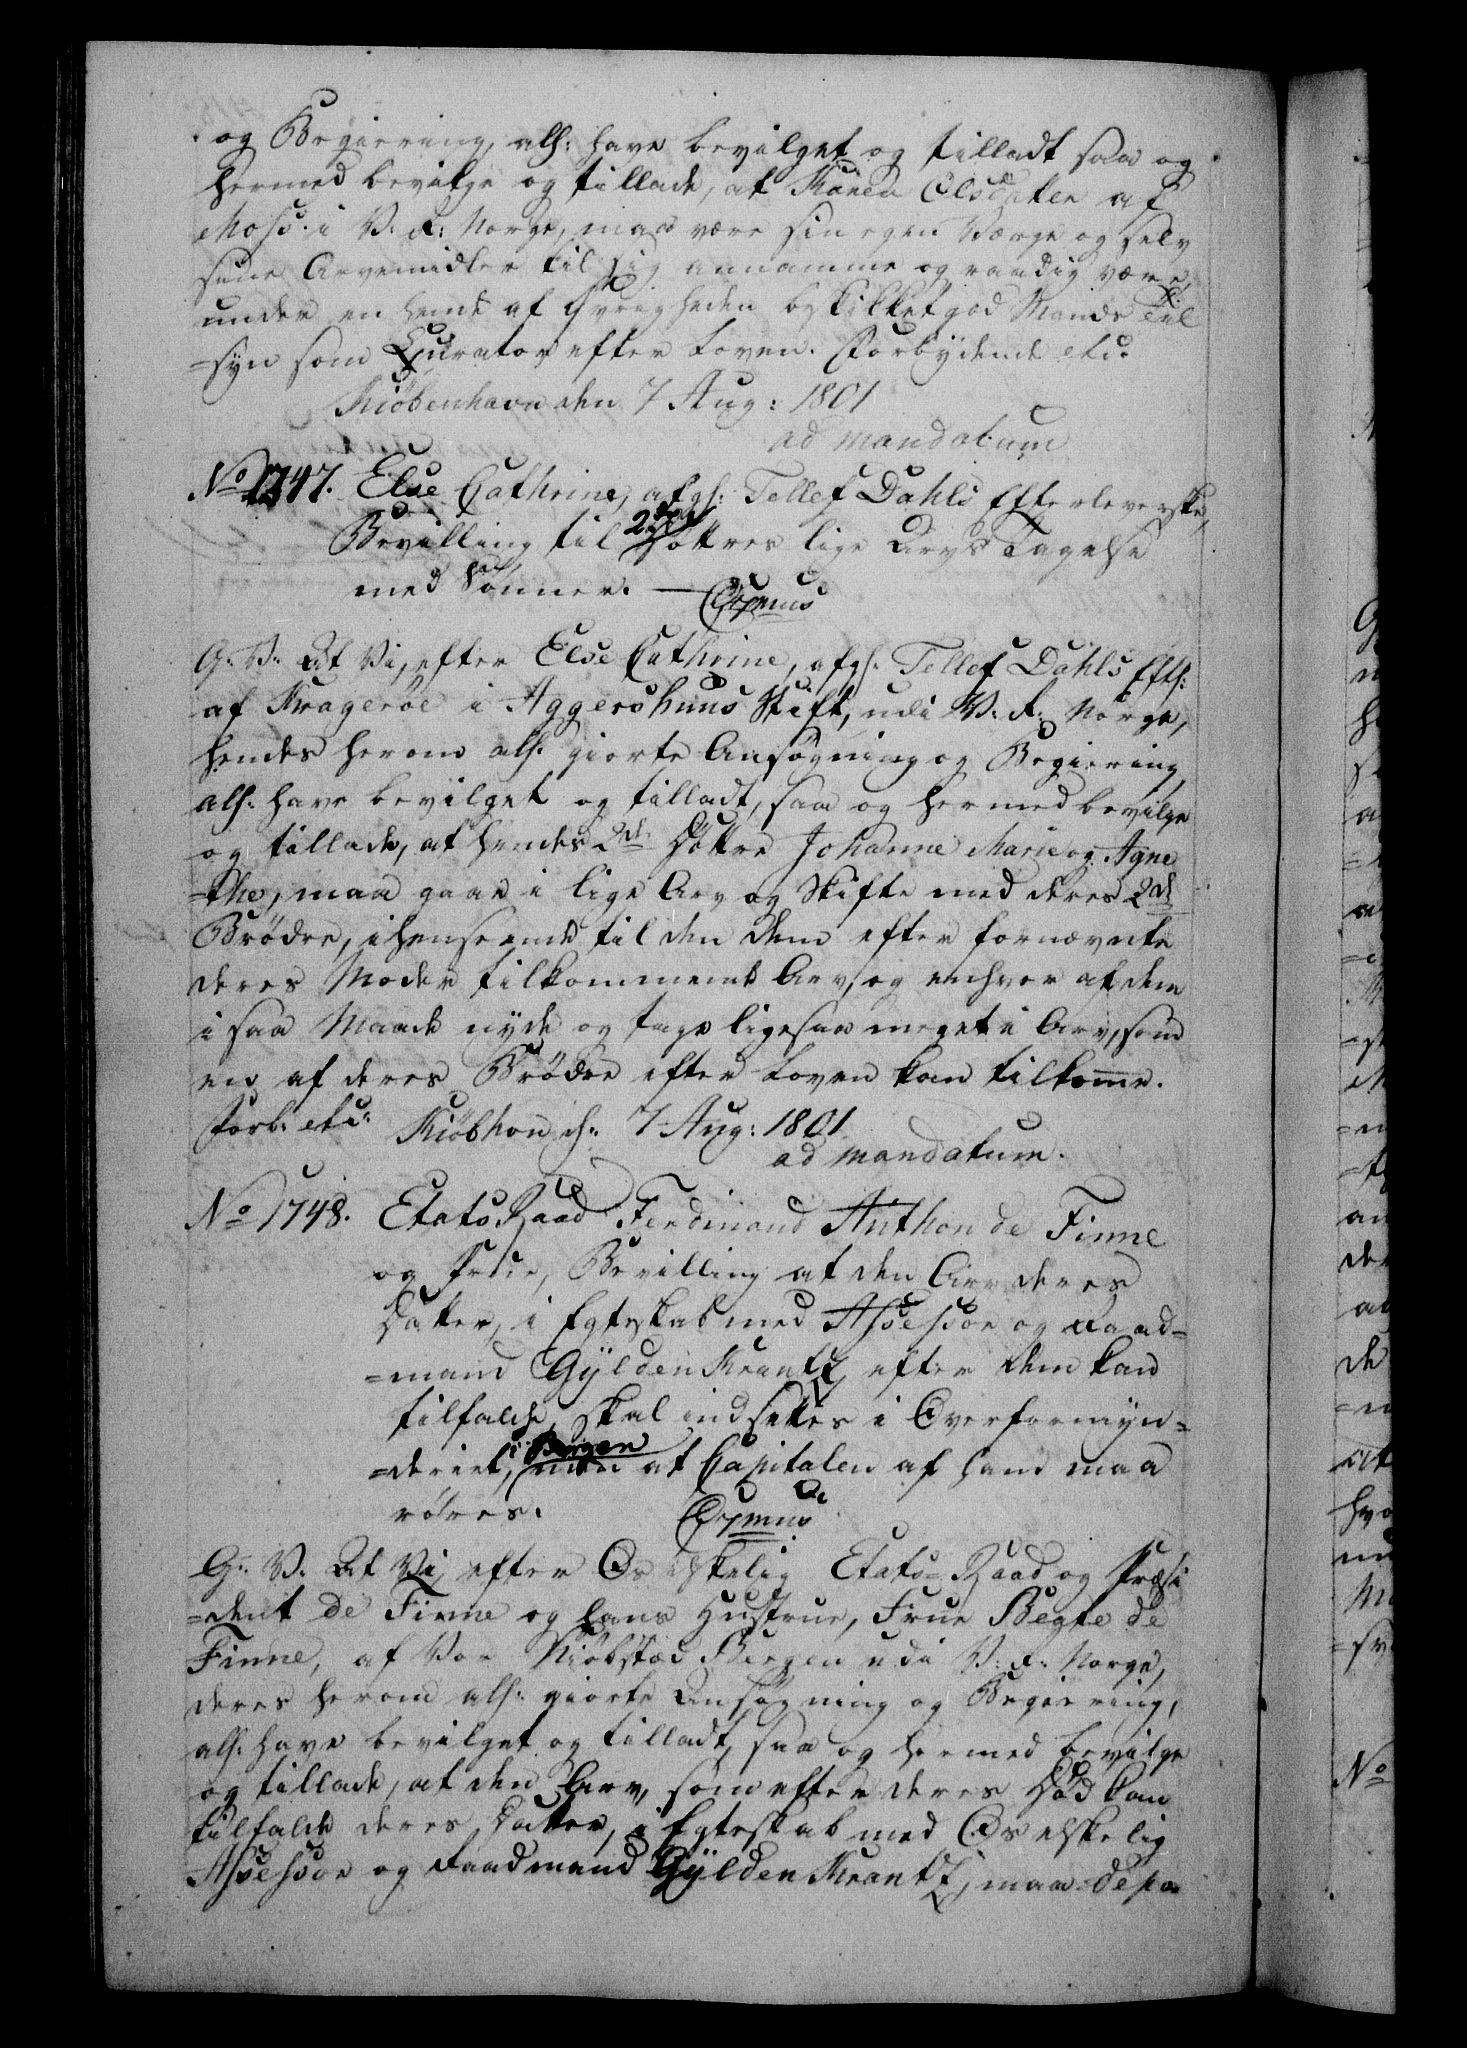 og Begiering, alln: have bevilget og tilladt saa og
hermed bevilge og tillade, at Karen Olsdatter af
Moss i V. R: Norge, maa være sin egen Værge og selv
sine Arvemidler til sig annamme og raadig være,
under en hende af Øvrigheden beskikket god Mands Til
=syn som Curator efter Loven. Forbydende etc:
Kiøbenhavn den 7 Aug: 1801
ad mandatum
No 1747. Else Cathrine, afg: Tellef Dahls Efterleverske,
Bevilling til 2de Døttres lige Arvs Tagelse
med Sønner. — Expmus
G. V. At Vi, efter Else Cathrine, afg: Tellef Dahls Eftl:
af Kragerøe i Aggershuus Stift, udi V: R: Norge,
hendes herom all: giorte Ansøgning og Begiering,
all: have bevilget og tilladt, saa og hermed bevilge
og tillade, at hendes 2de Døttre Johanne Marie og Agne
=the, maa gaae i lige Arv og Skifte med deres 2de
Brødre, ihenseende til den dem efter fornævnte
deres Moder tilkommende Arv, og enhver af dem
i saa Maade nyde og tage ligesaa meget i Arv, som
en af deres Brødre efter Loven kan tilkomme.
Forb: etc: Kiøbhvn d: 7 Aug: 1801
ad mandatum.
No 1748. EtatsRaad Ferdinand Anthon de Finne
og Frue, Bevilling at den Arv deres
Datter, i Egteskab med Assessor og Raad=
=mand GyldenKrantz, efter dem kan
tilfalde, skal indsættes i Overformyn=
=deriet, i Bergen uden at Capitalen af ham maa
røres. Expmus
G. V. At Vi, efter Os elskelig Etats=Raad og Præsi
=dent de Finne og hans Hustrue, Frue Begte de
Finne, af Vor Kiøbstæd Bergen udi V: R: Norge,
deres herom all: giorte Ansøgning og Begiering,
all: have bevilget og tilladt, saa og hermed bevilge
og tillade, at den Arv, som efter deres Død kan
tilfalde deres Datter, i Egteskab med Os elskelig
Assessor og Raadmand GyldenKrantz, maa depo